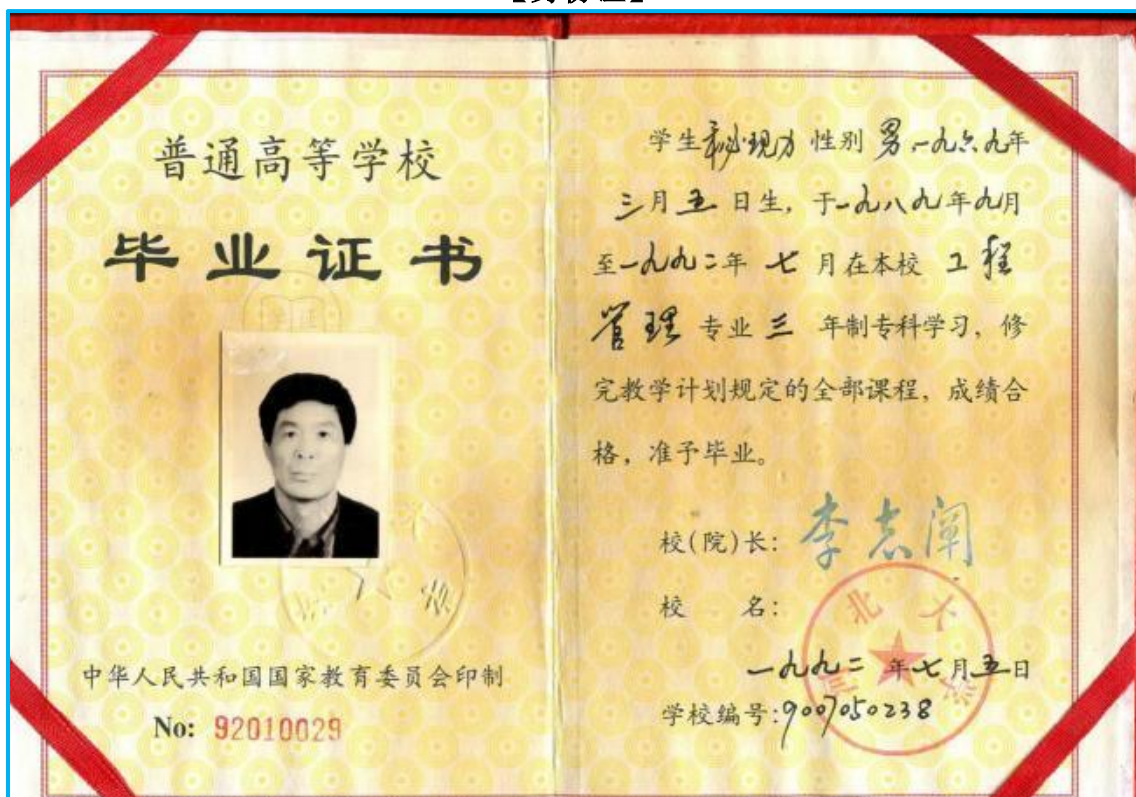 普通高等学校
毕业证书
中华人民共和国国家教育委员会印制
No: 92010029
学生 现力 性别 男 一九六九年
三月五日生，于一九八九年九月
至一九九二年 七 月在本校 工程
管理 专业 三 年制专科学习，修
完教学计划规定的全部课程，成绩合
格，准予毕业。
校(院)长: 李志阐
校 名:
河北大学
一九九二 年七月五日
学校编号:9007050238